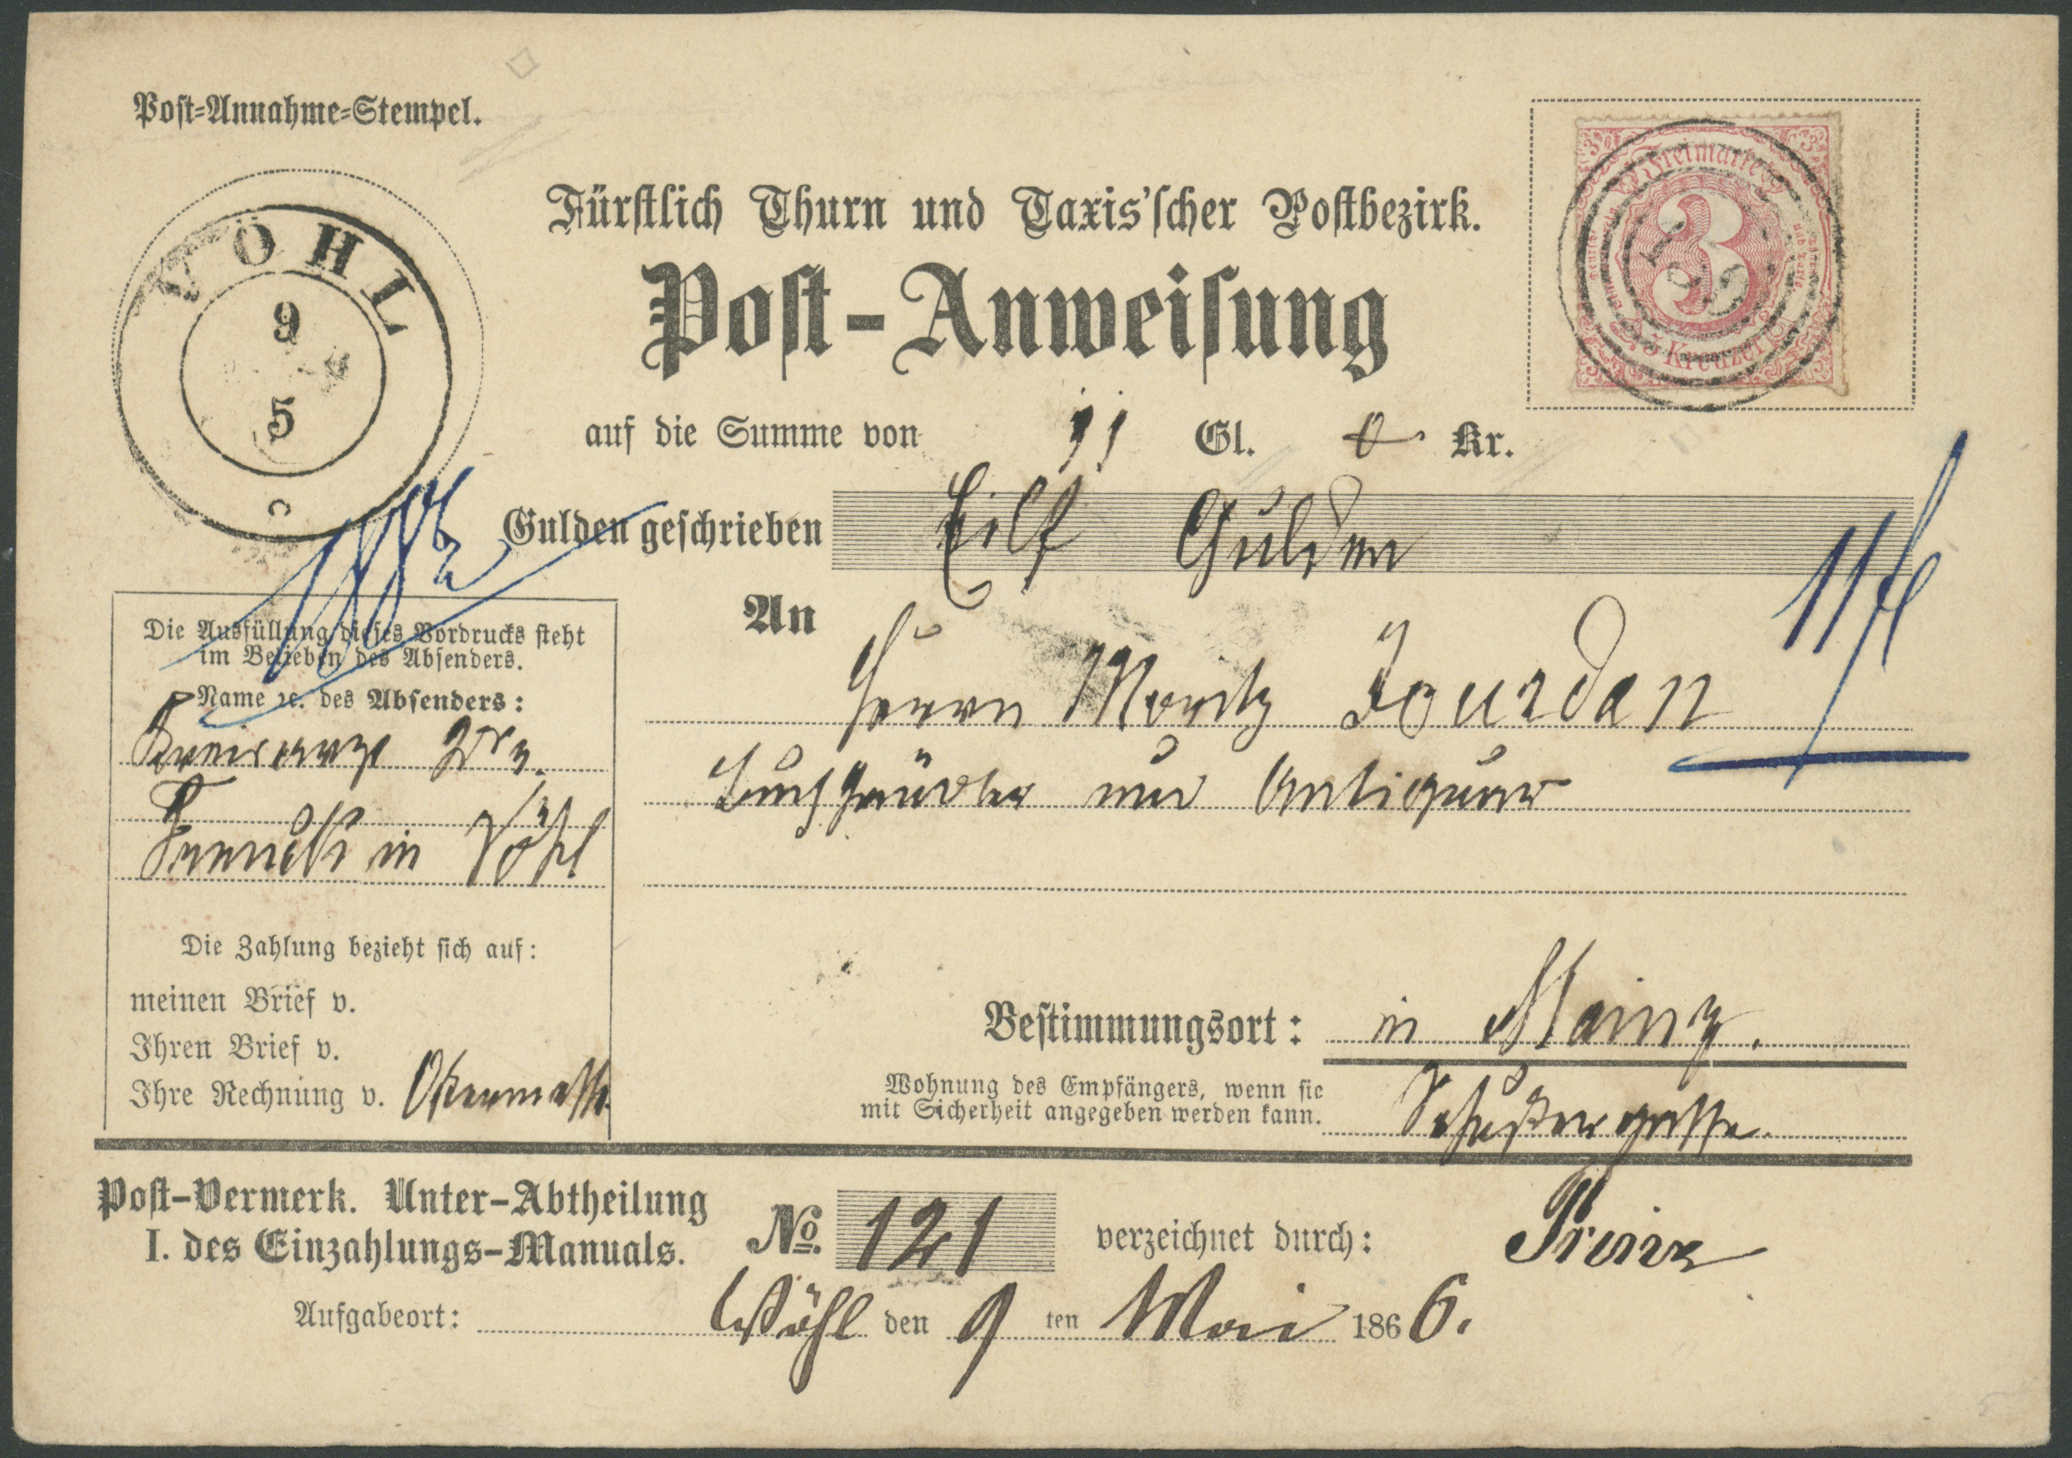 Post-Annahme-Stempel.
VÖHL
9
5
Fürstlich Thurn und Taxis'scher Postbezirk.
Post-Anweisung
Freimarke
3
3 Kreuzer
auf die Summe von 11 Gl. 0 Kr.
Gulden geschrieben Eilf Gulden
11 fl
An
Herrn Moritz Jourdan
Buchhändler und Antiquar
Die Ausfüllung dieses Vordrucks steht
im Belieben des Absenders.
Name ꝛc. des Absenders:
Kreisarzt Dr.
in Vöhl
Die Zahlung bezieht sich auf:
meinen Brief v.
Ihren Brief v.
Ihre Rechnung v. Ostermesse
Bestimmungsort: in Mainz.
Wohnung des Empfängers, wenn sie
mit Sicherheit angegeben werden kann.
Schustergasse.
Post-Vermerk. Unter-Abtheilung
I. des Einzahlungs-Manuals.
No. 121 verzeichnet durch:
Aufgabeort: Vöhl den 9 ten Mai 1866.